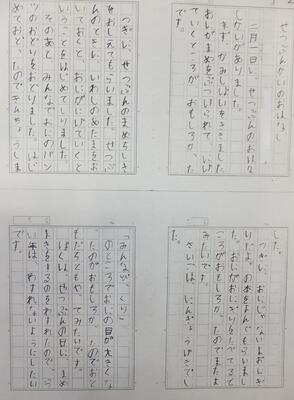 せつぶんかいのおはなし
二月一日に、せつぶんのおはな
しかいがありました。
まず、かみしばいをききました。
おにがまめをぶつけられて、にげ
ていくところが、おもしろかった
です。
つぎに、せつぶんのまめちしき
をおしえてもらいました。せつぶ
んのときに、いわしのあたまをお
いておくと、おにがにげていくと
いうことをはじめてしりました。
そのあと、みんなでおにのパン
ツのおどりをおどりました。はじ
めておどったのできんちょうしま
した。
つぎに、おにじゃないよおにぎ
りだよの本をよんでもらいまし
た。おにがおにぎりをたべてると
ころがおもしろかったのでまたよ
みたいです。
さいごは、にんぎょうげきでし
た。
「みんなびっくり」
のところでおにの目が大きくな
ったのがおもしろかったのでおと
もだちともやってみたいです。
ぼくは、せつぶんの日に、まめ
まきをするのをわすれたので、
い年は、わすれないようにしたい
です。